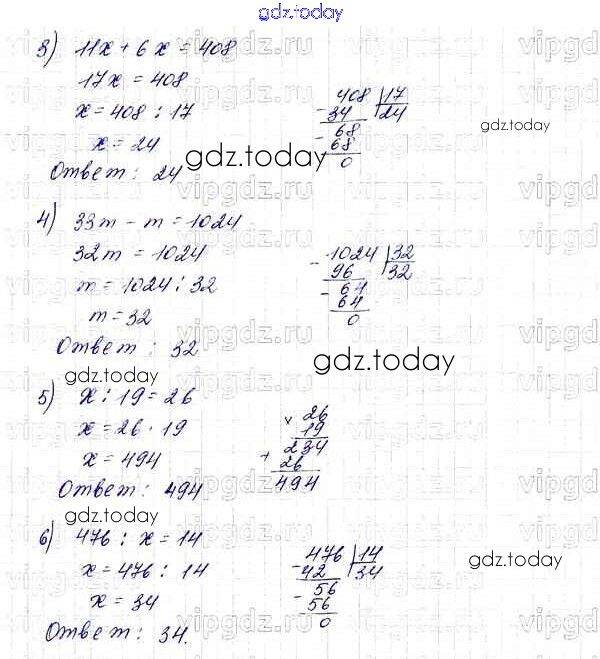 gdz.today
3) 11x + 6x = 408
17x = 408
x = 408 : 17
x = 24
Ответ: 24
408 | 17
- 34 24
- 68
68
0
gdz.today
gdz.today
4) 33m - m = 1024
32m = 1024
m = 1024 : 32
m = 32
Ответ: 32
- 1024 | 32
96 32
- 64
64
0
gdz.today
gdz.today
5) x : 19 = 26
x = 26 · 19
x = 494
Ответ: 494
× 26
19
+ 234
26
494
gdz.today
6) 476 : x = 14
x = 476 : 14
x = 34
Ответ: 34.
476 | 14
- 42 34
- 56
56
0
gdz.today
vipgdz.ru